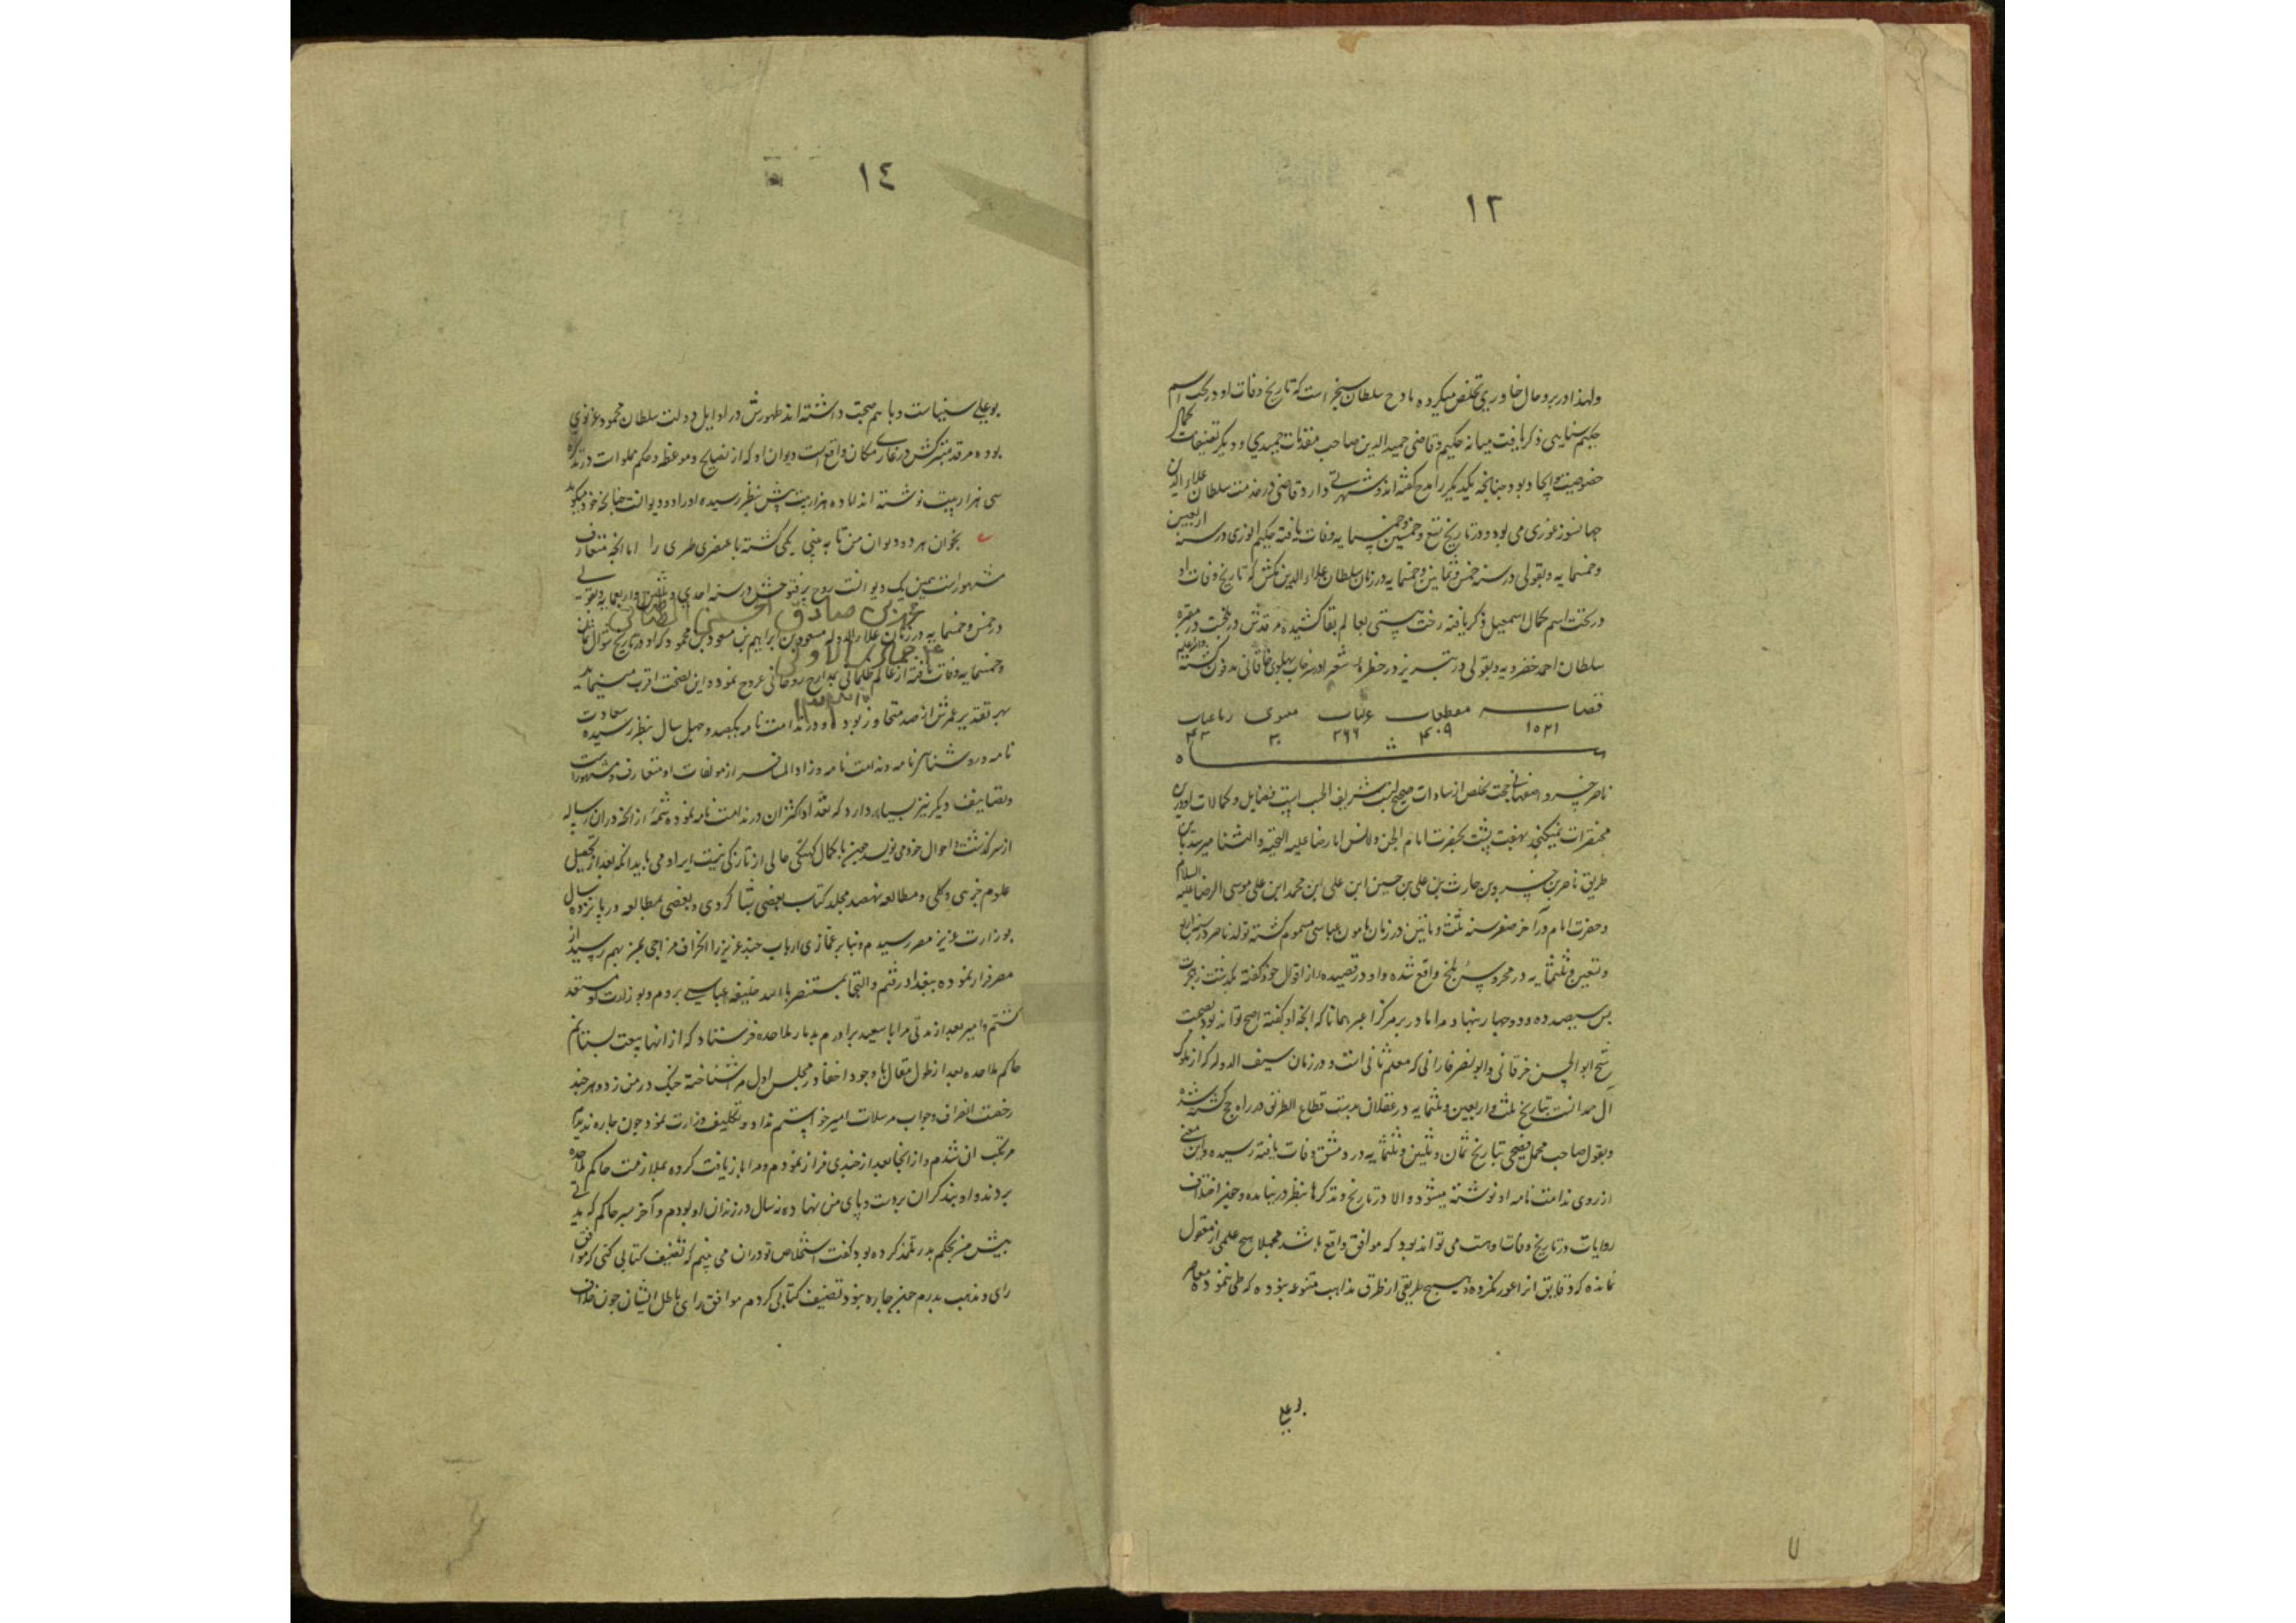 ١٢
ولهذا در بدو حال خاوری تخلص میکرده مادح سلطان سنجر است که تاریخ وفات او در تحت اسم
حکیم سنایی ذکر یافت میانه حکیم و قاضی حمید الدین صاحب مقامات حمیدی و دیگر تصنیفات کمال
خصوصیت و اتحاد بوده چنانچه یکدیگر را مدح گفته اند و شهرتی دارد و قاضی در خدمت سلطان علاء الدین
جهانسوز غوری می بوده و در تاریخ تسع و خمسین و خمسمایه وفات یافته حکیم انوری در سنه اربعین
و خمسمایه و بقولی در سنه خمس و ثمانین و خمسمایه در زمان سلطان علاء الدین تکش که تاریخ وفات او
در تحت اسم کمال اسمعیل ذکر یافته رخت هستی بعالم بقا کشیده مرقدش در بلخست در مقبره
سلطان احمد خضرویه و بقولی در تبریز در حظره شعرا در سرخاب پهلوی خاقانی مدفون گشته
قصاید مقطعات غزلیات مثنوی رباعیات
ناصر خسرو اصفهانی حجت تخلص از سادات صحیح النسب شریف الحسب است فضایل و کمالات او درین
مختصرات نمیگنجد بهفت پشت بحضرت امام الجن و الانس امام رضا علیه التحیة و الثنا میرسد باین
طریق ناصر بن خسرو بن حارث بن علی بن حسین ابن علی ابن محمد ابن علی موسی الرضا علیه السلام
و حضرت امام در آخر صفر سنه ثلث و مأتین در زمان مامون عباسی مسموم گشته تولد ناصر در سنه اربع
و تسعین و ثلثمایه در محروسه بلخ واقع شده و او در قصیده از اقوال خود گفته بگذشت ز هجرت
پس سیصد و نود و چهار بنهاد مرا مادر بر مرکز اغبر همانا که آنچه او گفته اصح تواند بود بصحبت
شیخ ابو الحسن خرقانی و ابو نصر فارابی که معلم ثانی است و در زمان سیف الدوله که از ملوک
آل حمدانست بتاریخ ثلث و اربعین و ثلثمایه در عسقلان بدست قطاع الطریق در راه حج کشته شده
و بقول صاحب مجمل فصیحی بتاریخ ثمان و ثلثین و ثلثمایه در دمشق وفات یافته رسیده و این معنی
از روی ندامت نامه او نوشته میشود و الا در تاریخ و تذکرها بنظر در نیامده و چنین اختلاف
روایات در تاریخ وفات اوست می تواند بود که موافق واقع باشد مجملا هیچ علمی از معقول
نمانده که دقایق آنرا غور نکرده و هیچ طریقی از طرق مذاهب متنوعه نبوده که طی ننموده معاصر
بوعلی
٧
١٤
بوعلی سیناست و با هم صحبت داشته اند ظهورش در اوایل دولت سلطان محمود غزنوی
بوده مرقد متبرکش در غاری مکان واقع است دیوان او که از نصایح و موعظه و حکم مملو است در تذکره
سی هزار بیت نوشته اند اما ده هزار بیت بیش بنظر رسیده او را دو دیوانست چنانچه خود میگوید
بخوان هر دو دیوان من تا به بینی یکی گشته با عنصری طری را اما آنچه متعارف
مشهور است همین یک دیوانست روح پر فتوحش در سنه احدی و ثلثین و اربعمایه و بقولی
در خمس و خمسمایه در زمان علاء الدوله مسعود بن ابراهیم بن مسعود بن محمود که او در تاریخ شوال ثمان
و خمسمایه وفات یافته از عالم ظلمانی بمدارج روحانی عروج نمود و این بصحت اقرب مینماید
بهر تقدیر عمرش از صد متجاوز بود و در ندامت نامه یکصد و چهل سال بنظر رسیده سعادت
نامه و روشنائی نامه و ندامت نامه و زاد المسافر از مولفات او متعارف و مشهور است
و تصانیف دیگر نیز بسیار دارد که تعداد اکثر آن در ندامت نامه نموده شمه از آنچه در آن رساله
از سرگذشت و احوال خود می نویسد چون با کمال کهنگی خالی از تازگی نیست ایراد می یابد آنکه بعد از تحصیل
علوم جزئی و کلی و مطالعه نهصد مجلد کتاب بعضی بشاگردی و بعضی بمطالعه در پانزده سال
بوزارت عزیز مصر رسیدم و بنا بر غمازی ارباب حسد عزیز را انحراف مزاجی بمن بهم رسید از
مصر فرار نموده ببغداد رفتم و التجا بمستنصر بالله خلیفه عباسی بردم و بوزارت او مستعد
گشتم و امیر بعد از مدتی مرا با سعید برادرم بدیار ملاحده فرستاد که از آنها بیعت بستانم
حاکم ملاحده بعد از طول مقال با وجود اخفا در مجلس اول مرا شناخته چنگ در من زد و هر چند
رخصت انصراف و جواب مرسلات امیر خواستم نداد و تکلیف وزارت نمود چون چاره ندیدم
مرتکب آن شدم و از آنجا بعد از چندی فرار نمودم و مرا باز یافت کرده بملازمت حاکم ملاحده
بردند و او بند گران بر دست و پای من نهاده نه سال در زندان او بودم و آخر پسر حاکم که بدی
پیش من بحکم پدر تلمذ کرده بود گفت استخلاص تو در آن می بینم که تصنیف کتابی کنی که موافق
رای و مذهب پدرم چون چاره نبود تصنیف کتابی کردم موافق رای باطل ایشان چون خلاف